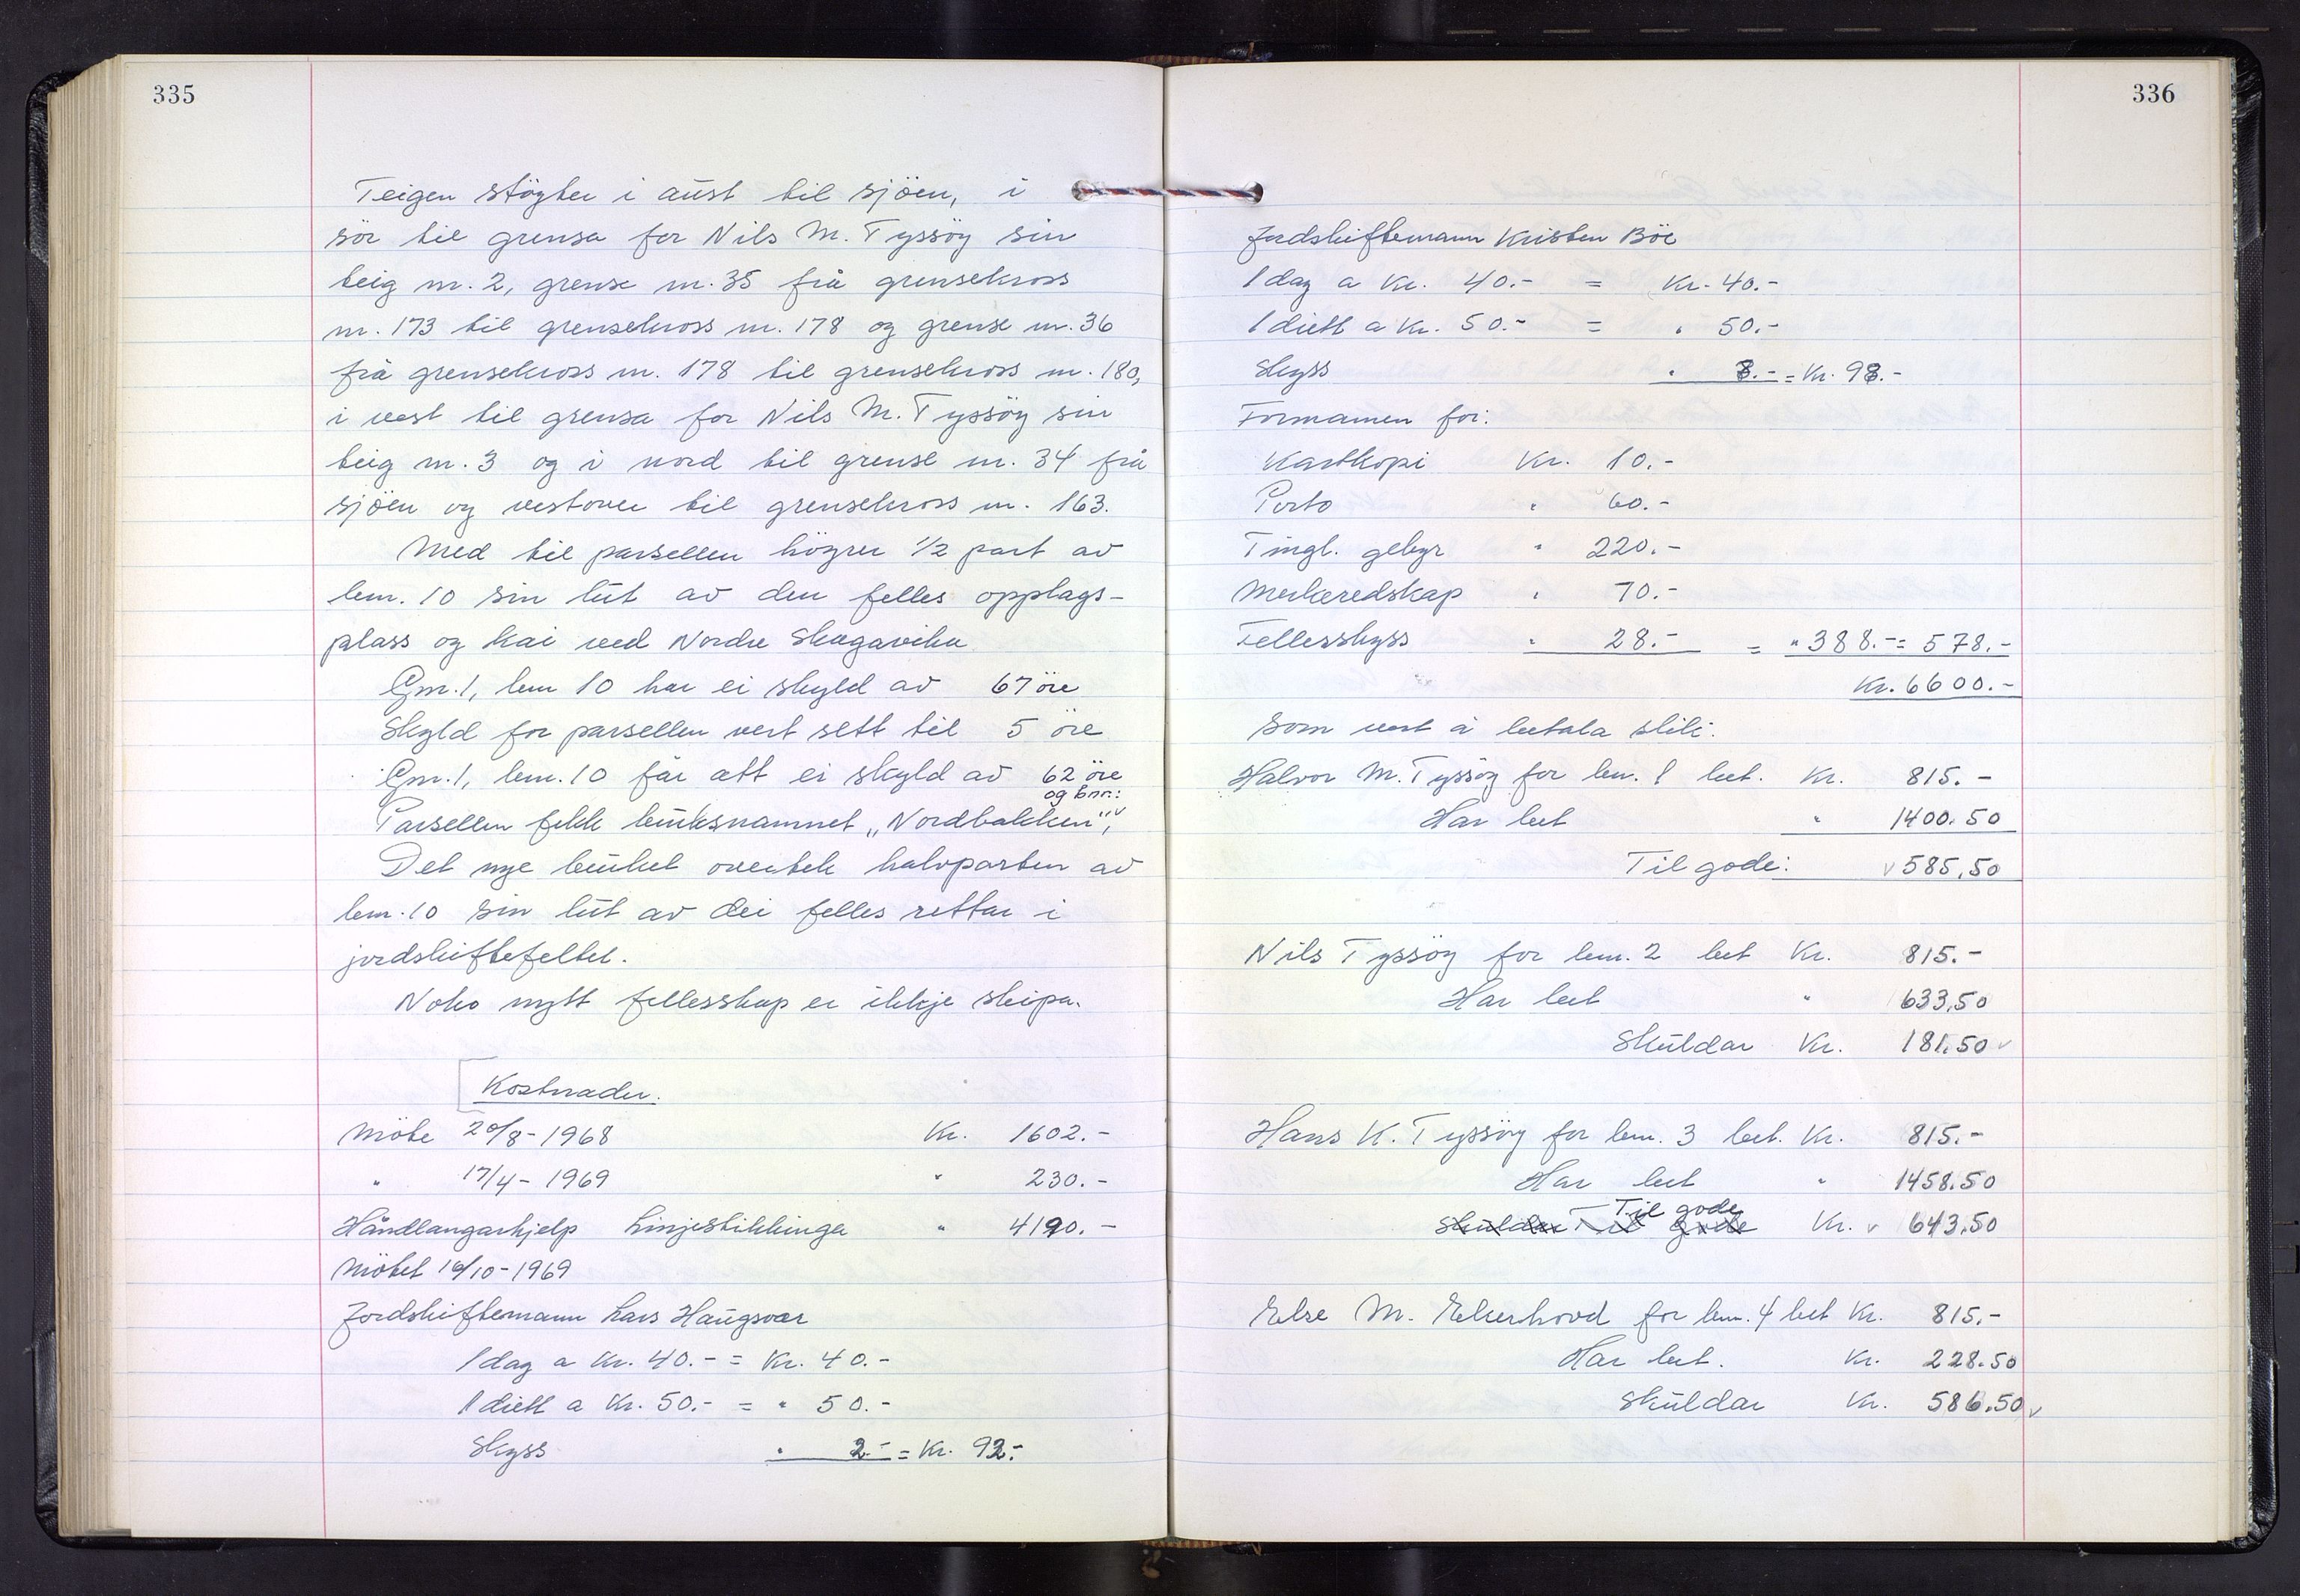 335
Teigen støyter i aust til sjöen, i
sör til grensa for Nils M. Tyssöy sin
teig nr. 2, grense nr. 35 frå grensekross
nr. 173 til grensekross nr. 178 og grense nr. 36
frå grensekross nr. 178 til grensekross nr. 180,
i vest til grensa for Nils M. Tyssöy sin
teig nr. 3 og i nord til grense nr. 34 frå
sjöen og vestover til grensekross nr. 163.
Med til parsellen höyrer 1/2 part av
bnr. 10 sin lut av den felles opplags-
plass og kai ved Nordre Skagavika
Gnr. 1, bnr 10 har ei skyld av 67 öre
Skyld for parsellen vert sett til 5 öre
Gnr. 1, bnr. 10 får att ei skyld av 62 öre
og bnr.:
Parsellen fekk bruksnamnet „Nordbakken",
Det nye bruket overtek halvparten av
bnr. 10 sin lut av dei felles rettar i
jordskiftefeltet.
Noko nytt fellesskap er ikkje skipa.
Kostnader.
Möte 20/8 - 1968 Kr. 1602.-
" 17/4 - 1969 " 230.-
Håndlangarhjelp Linjestikkinga " 4190.-
Mötet 16/10 - 1969
Jordskiftemann Lars Haugsvær
1 dag a Kr. 40.- = Kr. 40.-
1 diett a Kr. 50.- = " 50.-
Skyss " 2.- = Kr. 92.-
336
Jordskiftemann Kristen Böe
1 dag a Kr. 40.- = Kr. 40.-
1 diett a Kr. 50.- = " 50.-
Skyss " 8.- = Kr. 98.-
Formannen for:
Kartkopi Kr. 10.-
Porto " 60.-
Tingl. gebyr " 220.-
Merkeredskap " 70.-
Fellesskyss " 28.- = " 388.- = 578.-
Kr. 6600.-
Som vert å betala slik:
Halvor M. Tyssöy for bnr. 1 bet. Kr. 815.-
Har bet " 1400.50
Til gode: 585,50
Nils Tyssöy for bnr. 2 bet Kr. 815.-
Har bet " 633,50
Skuldar Kr. 181.50
Hans K. Tyssöy for bnr. 3 bet. Kr. 815.-
Har bet " 1458.50
Til gode
Skuldar Til gode Kr. 643,50
Else M. Ekerhovd for bnr. 4 bet Kr. 815.-
Har bet. Kr. 228.50
Skuldar Kr. 586.50